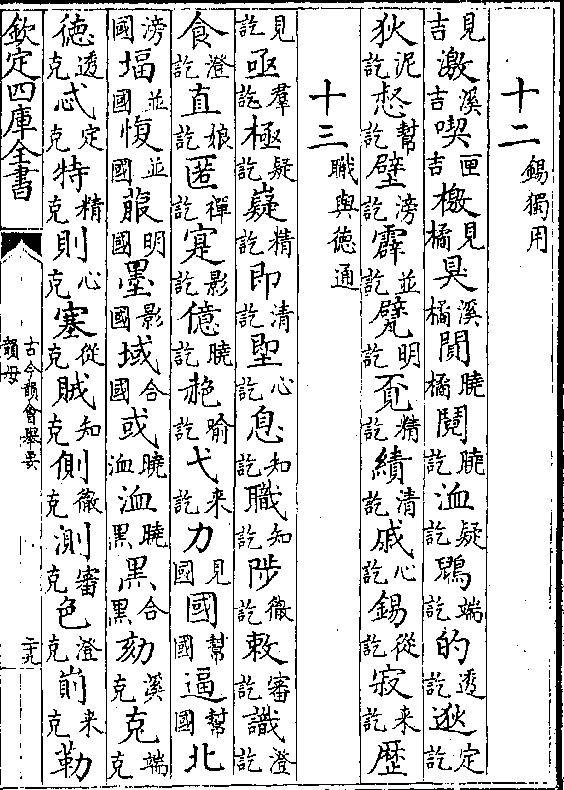 十二 錫獨用
見吉激溪吉喫匣吉檄見橘狊溪橘闃曉橘鬩曉訖洫疑訖鶂端訖的透訖逖定訖
狄泥訖惄幫訖壁滂訖霹並訖甓明訖覓精訖績清訖戚心訖錫從訖寂来訖歴
十三 職與德通
見訖亟羣訖極疑訖嶷精訖即清訖堲心訖息知訖職知訖陟徹訖敕審訖識澄訖
食澄訖直娘訖匿禪訖寔影訖億曉訖赩喻訖弋来訖力見國國幫國逼幫國北
滂國堛並國愎並國菔明國墨影國域合國或曉洫洫曉黑黑合黑劾溪克克端克
德透克忒定克特精克則心克塞從克賊知克側徹克測審克色澄克崱来克勒
欽定四庫全書
古今韻會舉要
韻母
二十九